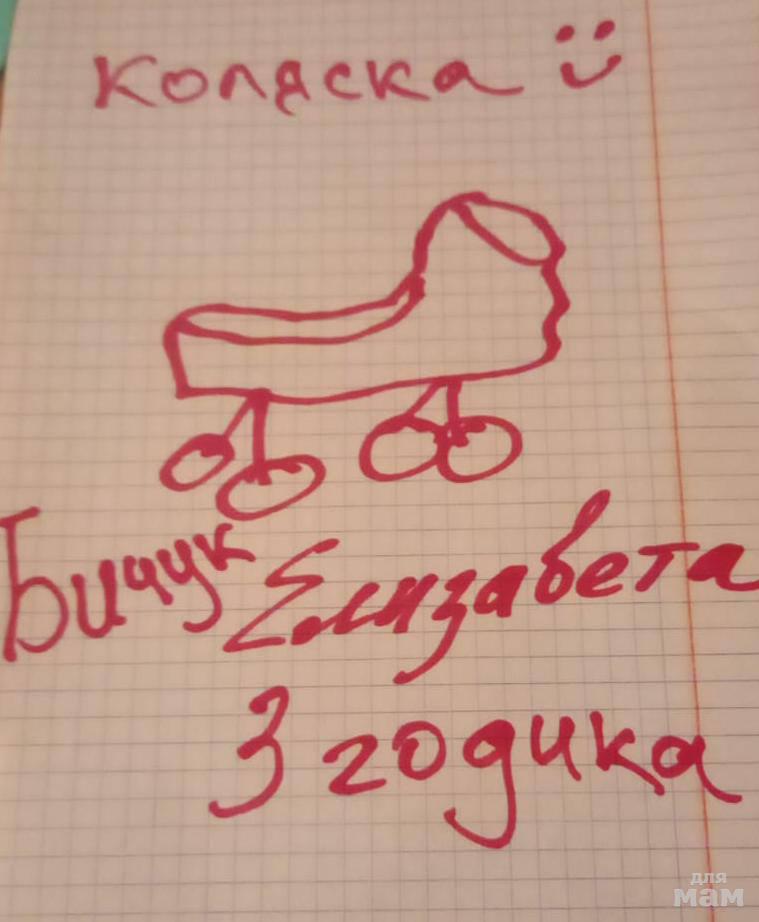 коляска
Бичук Елизавета
3 годика
для
мам